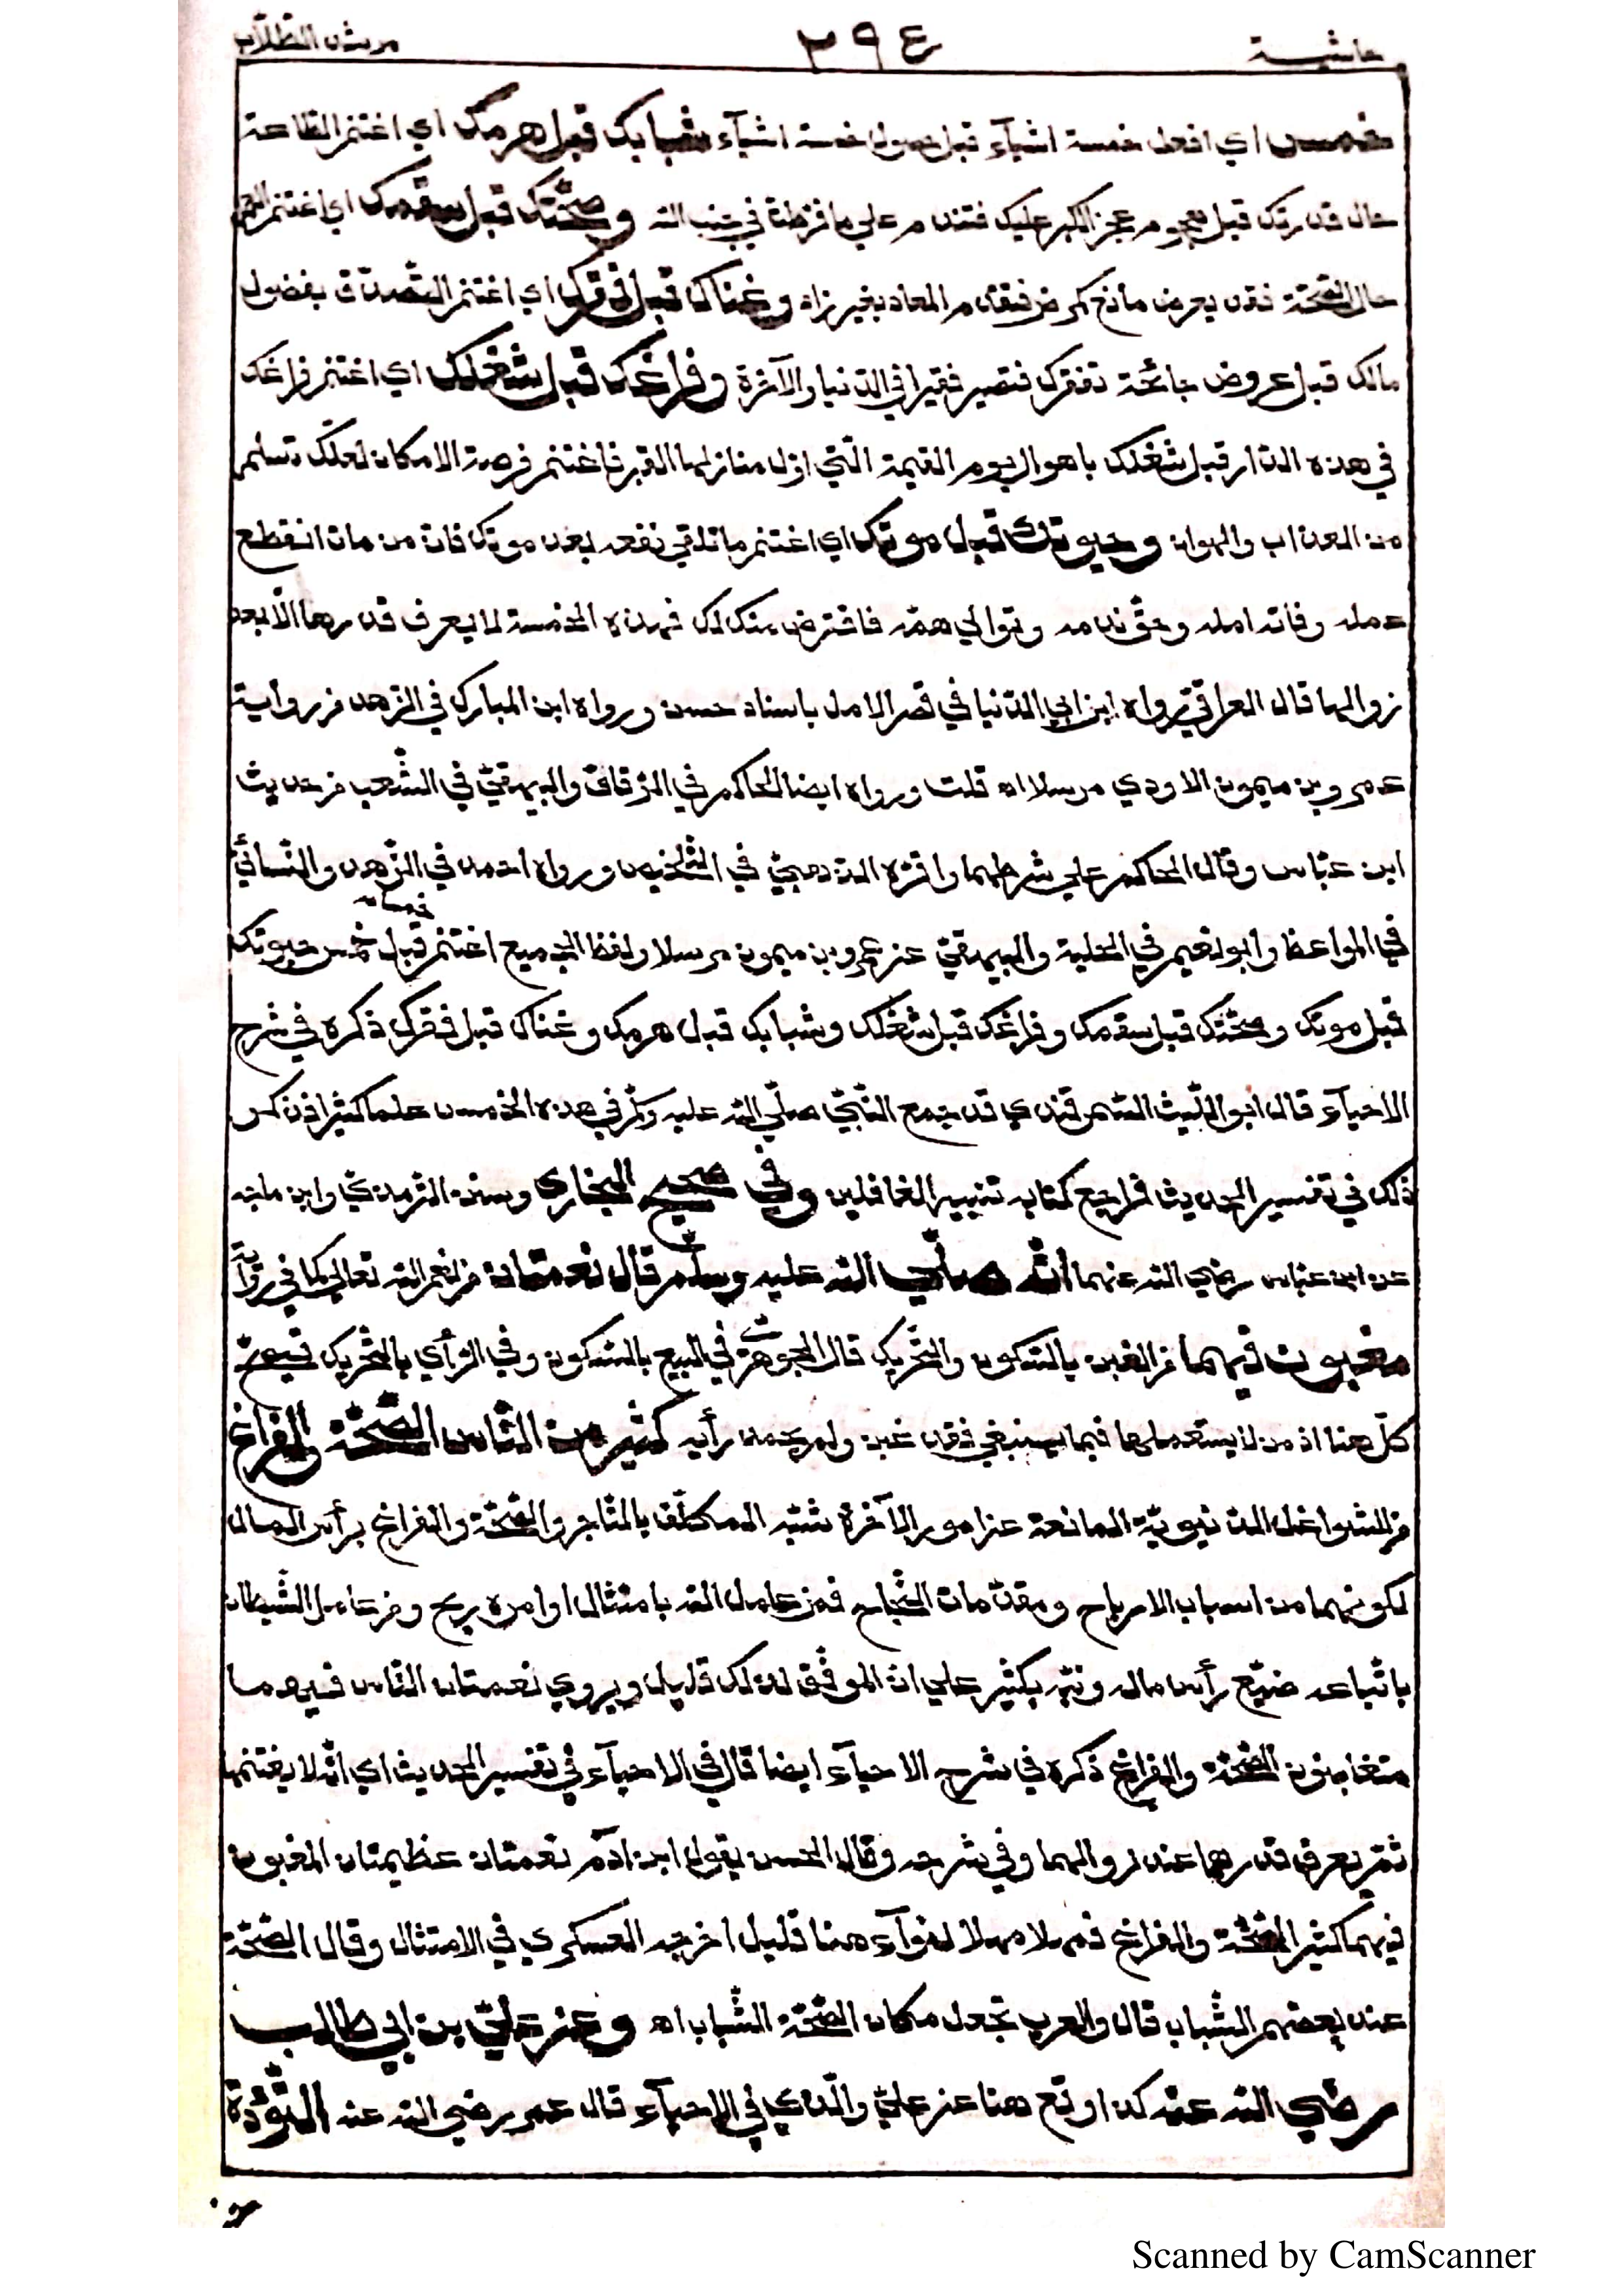 حاشية ٢٩٤ مرشد الطلاب
خمس اي افعل خمسة اشيآء قبل حصول خمسة اشيآء شبابك قبل هرمك اي اغتنم الطاعة
حال قدرتك قبل هجوم عجز الكبر عليك فتندم على ما فرّطت في جنب الله وصحّتك قبل سقمك اي اغتنم العمل
حال الصّحّة فقد يعرض مانع كمرض فتقدم المعاد بغير زاد وغناك قبل فقرك اي اغتنم التّصدّق بفضول
مالك قبل عروض جائحة تفقرك فتصير فقيرا في الدّنيا والآخرة وفراغك قبل شغلك اي اغتنم فراغك
في هذه الدّار قبل شغلك باهوال يوم القيمة الّتي اوّل منازلها القبر فاغتنم فرصة الامكان لعلّك تسلم
من العذاب والهوان وحيوتك قبل موتك اي اغتنم ما تلقي نفعه بعد موتك فان من مات انقطع
عمله وفاته امله وحقّ ندمه وتوالي همّه فاقترض منك لك فهذه الخمسة لا يعرف قدرها الّا بعد
زوالها قال العراقيّ رواه ابن ابي الدّنيا في قصر الامل باسناد حسن ورواه ابن المبارك في الزّهد من رواية
عمرو بن ميمون الاودي مرسلا اه قلت ورواه ايضا الحاكم في الرّقاق والبيهقيّ في الشّعب من حديث
ابن عبّاس وقال الحاكم علي شرطهما واقرّه الذّهبيّ في التّلخيص ورواه احمد في الزّهد والنّسائيّ
في المواعظ وابو نعيم في الحلية والبيهقيّ عن عمرو بن ميمون مرسلا ولفظ الجميع اغتنم خمسا قبل خمس حيوتك
قبل موتك وصحّتك قبل سقمك وفراغك قبل شغلك وشبابك قبل هرمك وغناك قبل فقرك ذكره في شرح
الاحيآء قال ابو اللّيث السّمرقندي قد جمع النّبيّ صلّي الله عليه وسلّم في هذه الخمس علما كثيرا ذكر
ذلك في تفسير الحديث فراجع كتابه تنبيه الغافلين وفي صحيح البخاري وسنن التّرمذيّ وابن ماجه
عن ابن عبّاس رضي الله عنهما انّه صلّي الله عليه وسلّم قال نعمتان من نعم الله تعالي كما في رواية
مغبون فيهما من الغبن بالسّكون والتّحريك قال الجوهريّ في البيع بالسّكون وفي الرّأي بالتّحريك فيصحّ
كلّ هنا اذ من لا يستعملهما فيما ينبغي فقد غبن ولم يحمد رأيه كثير من النّاس الصّحّة والفراغ
من الشواغل الدّنيويّة المانعة عن امور الآخرة شبّه المكلّف بالتّاجر والصّحّة والفراغ برأس المال
لكونهما من اسباب الارباح ومقدّمات النّجاح فمن عامل الله بامتثال اوامره ربح ومن عامل الشّيطان
باتّباعه ضيّع رأس ماله ونبّه بكثير علي ان الموفّق لذلك قليل ويروي نعمتان النّاس فيهما
متغابنون الصّحّة والفراغ ذكره في شرح الاحيآء ايضا قال في الاحيآء في تفسير الحديث اي انّه لا يغتنمهما
ثمّ يعرف قدرهما عند زوالهما وفي شرحه وقال الحسن يقول ابن آدم نعمتان عظيمتان المغبون
فيهما كثير الصّحّة والفراغ فمهلا مهلا لثوآء هنا قليل اخرجه العسكري في الامثال وقال الصّحّة
عند بعضهم الشّباب قال والعرب تجعل مكان الصّحّة الشّباب اه وعن عليّ بن ابي طالب
رضي الله عنه كذا وقع هنا عن عليّ والّذي في الاحيآء قال عمر رضي الله عنه التّؤدة
Scanned by CamScanner